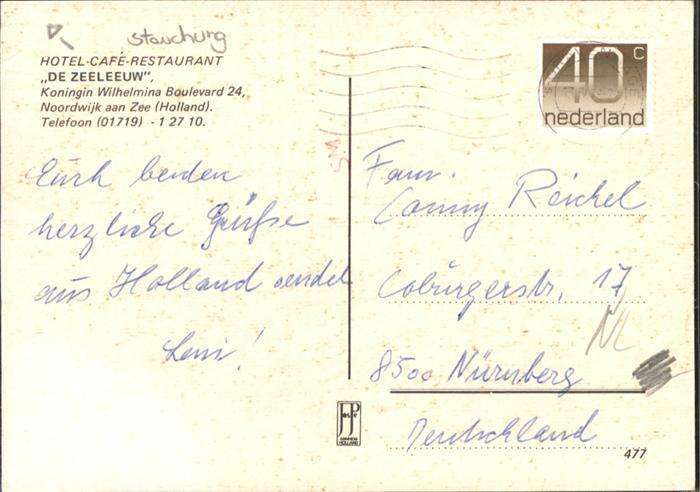 Stauchung
HOTEL-CAFÉ-RESTAURANT
„DE ZEELEEUW",
Koningin Wilhelmina Boulevard 24,
Noordwijk aan Zee (Holland).
Telefoon (01719) - 1 27 10.
40 c
nederland
Euch beiden
herzliche Grüße
aus Holland sendet
Leni!
Fam.
Conny Reichel
Coburgerstr. 17
NL
8500 Nürnberg
Deutschland
477